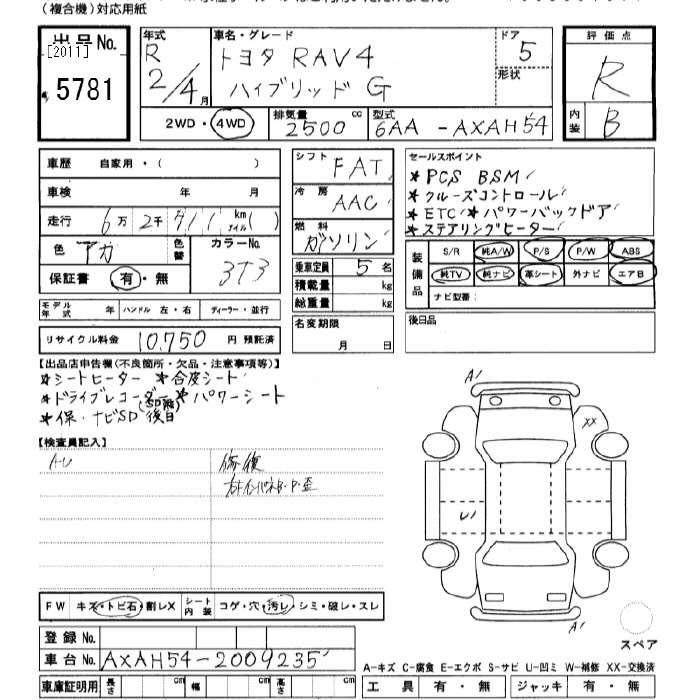 (複合機)対応用紙
出品No.
[2011]
5781
年式
R
2/4月
車名・グレード
トヨタ RAV4
ハイブリッド G
ドア
5
形状
評価点
R
内装
B
2WD・4WD
排気量
2500cc
型式
6AA -AXAH54
車歴 自家用・( )
車検 年 月
走行 6万 2千 km マイル( )
色 アカ
色替
カラーNo.
3T3
保証書 有・無
シフト FAT
冷房 AAC
燃料 ガソリン
乗車定員 5名
積載量 kg
総重量 kg
セールスポイント
★PCS BSM
★クルーズコントロール
★ETC ★パワーバックドア
★ステアリングヒーター
装備品
S/R 純A/W P/S P/W ABS
純TV 純ナビ 革シート 外ナビ エアB
ナビ型番:
モデル年式 年 ハンドル 左・右 ディーラー・並行
リサイクル料金 10,750 円 預託済
名変期限
月 日
後日品
【出品店申告欄(不良箇所・欠品・注意事項等)】
★シートヒーター ★合皮シート
★ドライブレコーダー ★パワーシート
(SD無)
★保・ナビSD 後日
【検査員記入】
A・U
修復
A'
XX
U'
A'
FW キズ・トビ石・割レX シート内装 コゲ・穴・汚レ・シミ・破レ・スレ
スペア
登録No.
車台No. AXAH54-2009235
A-キズ C-腐食 E-エクボ S-サビ U-凹ミ W-補修 XX-交換済
車庫証明用 長さ cm 幅 cm 高さ cm
工具 有・無 ジャッキ 有・無